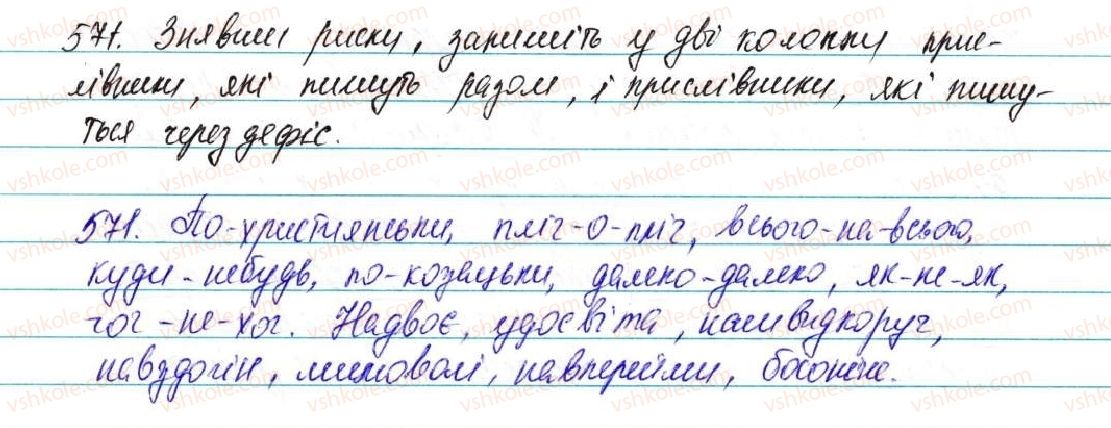 571. Знявши риску, запишіть у дві колонки прис-
лівники, які пишуть разом, і прислівники, які пишу-
ться через дефіс.
571. По-християнськи, пліч-о-пліч, всього-на-всього,
куди-небудь, по-козацьки, далеко-далеко, як-не-як,
хоч-не-хоч. Надвоє, удосвіта, нашвидкоруч,
навздогін, мимоволі, навперейми, босоніж.